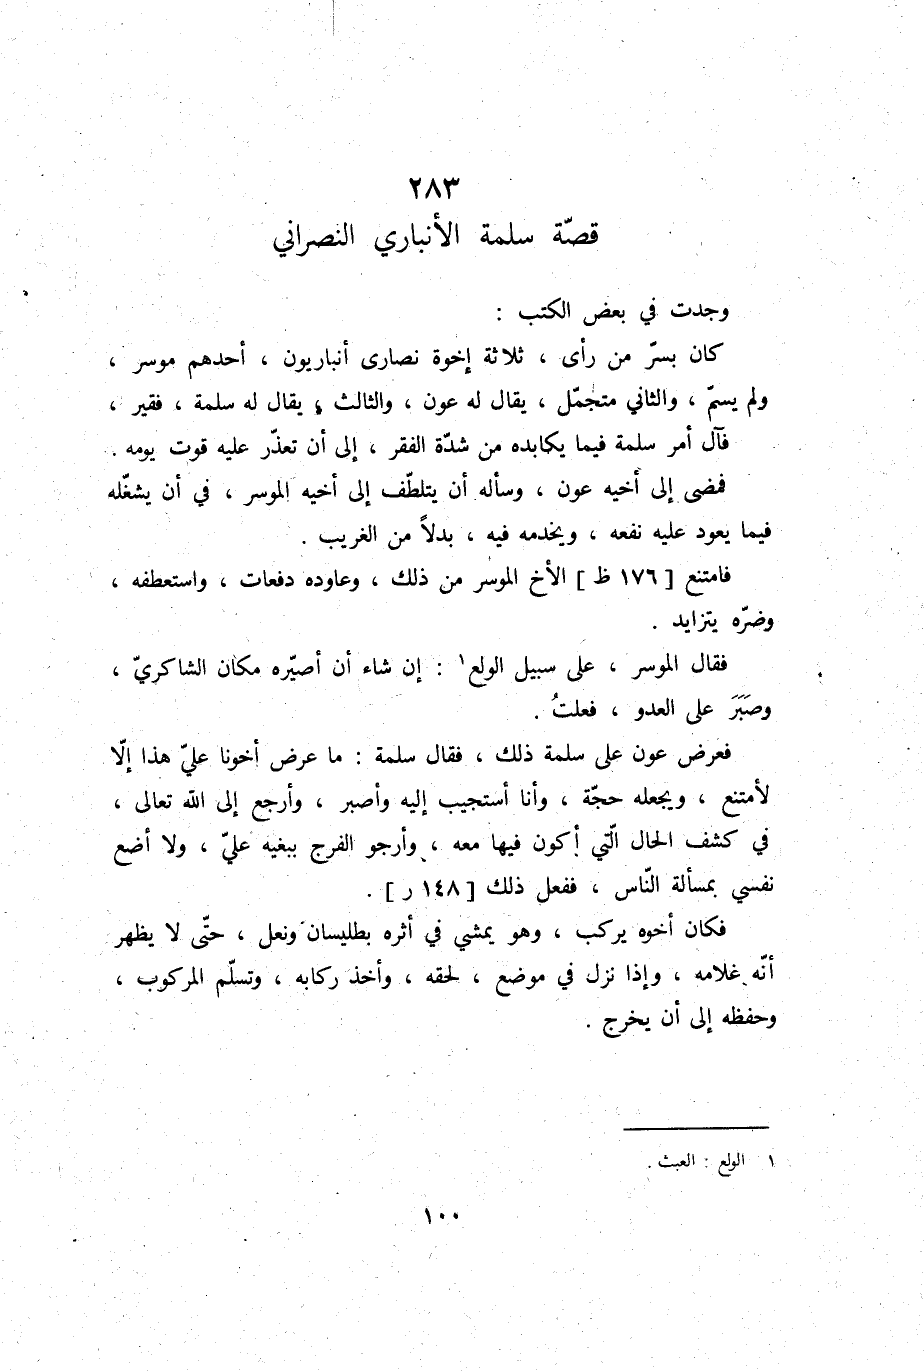 ٢٨٣
قصّة سلمة الأنباري النصراني
وجدت في بعض الكتب :
كان بسرّ من رأى ، ثلاثة إخوة نصارى أنباريون ، أحدهم موسر ،
ولم يسمّ ، والثاني متجمّل ، يقال له عون ، والثالث ، يقال له سلمة ، فقير ،
فآل أمر سلمة فيما يكابده من شدّة الفقر ، إلى أن تعذّر عليه قوت يومه .
فمضى إلى أخيه عون ، وسأله أن يتلطّف إلى أخيه الموسر ، في أن يشغّله
فيما يعود عليه نفعه ، ويخدمه فيه ، بدلاً من الغريب .
فامتنع [ ١٧٦ ظ ] الأخ الموسر من ذلك ، وعاوده دفعات ، واستعطفه ،
وضرّه يتزايد .
فقال الموسر ، على سبيل الولع١ : إن شاء أن أصيّره مكان الشاكريّ ،
وصَبَرَ على العدو ، فعلتُ .
فعرض عون على سلمة ذلك ، فقال سلمة : ما عرض أخونا عليّ هذا إلّا
لأمتنع ، ويجعله حجّة ، وأنا أستجيب إليه وأصبر ، وأرجع إلى الله تعالى ،
في كشف الحال الّتي أكون فيها معه ، وأرجو الفرج ببغيه عليّ ، ولا أضع
نفسي بمسألة النّاس ، ففعل ذلك [ ١٤٨ ر ] .
فكان أخوه يركب ، وهو يمشي في أثره بطليسان ونعل ، حتّى لا يظهر
أنّه غلامه ، وإذا نزل في موضع ، لحقه ، وأخذ ركابه ، وتسلّم المركوب ،
وحفظه إلى أن يخرج .
١ الولع : العبث .
١٠٠